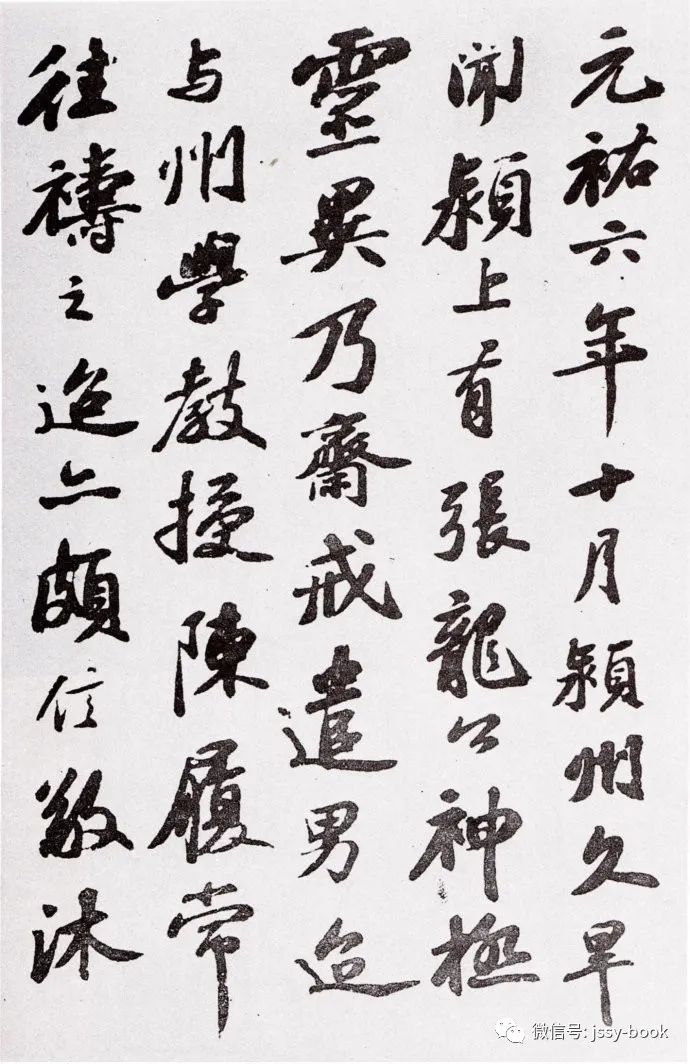 元祐六年十月潁州久旱
聞潁上有張龍公神極
靈異乃齋戒遣男迨
与州學教授陳履常
往禱之迨亦頗信敬沐
微信号: jssy-book